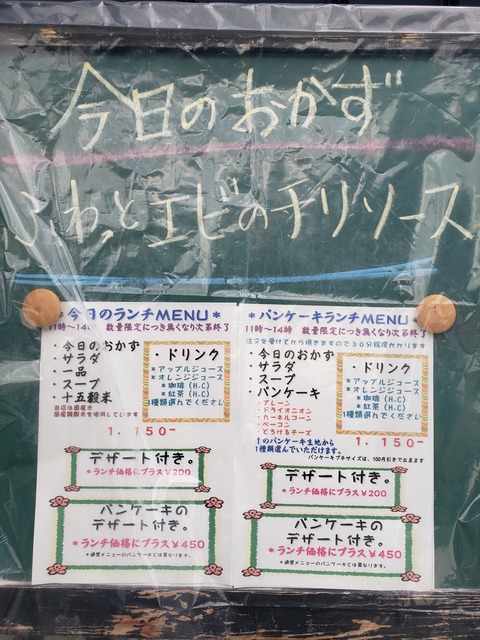 今日のおかず
ふわっとエビのチリソース
*今日のランチMENU*
11時〜14時 数量限定につき無くなり次第終了
・今日のおかず
・サラダ
・一品
・スープ
・十五穀米
当店は国産米
国産雑穀米を使用しています
・ドリンク
*アップルジュース
*オレンジジュース
*珈琲（H.C)
*紅茶（H.C)
1種類選んでください
1．150-
デザート付き。
*ランチ価格にプラス¥200
パンケーキの
デザート付き。
*ランチ価格にプラス¥450
*通常メニューのパンケーキとは異なります。
*パンケーキランチMENU*
11時〜14時 数量限定につき無くなり次第終了
注文を受けてから焼きますので30分程度かかります
・今日のおかず
・サラダ
・スープ
・パンケーキ
・プレーン
・ドライオニオン
・カーネルコーン
・ベーコン
・とろけるチーズ
1つのパンケーキ生地から
1種類選んでいただけます。
・ドリンク
*アップルジュース
*オレンジジュース
*珈琲（H.C)
*紅茶（H.C)
1種類選んでください
1．150-
パンケーキプチサイズは、100円引きで出来ます
デザート付き。
*ランチ価格にプラス¥200
パンケーキの
デザート付き。
*ランチ価格にプラス¥450
*通常メニューのパンケーキとは異なります。